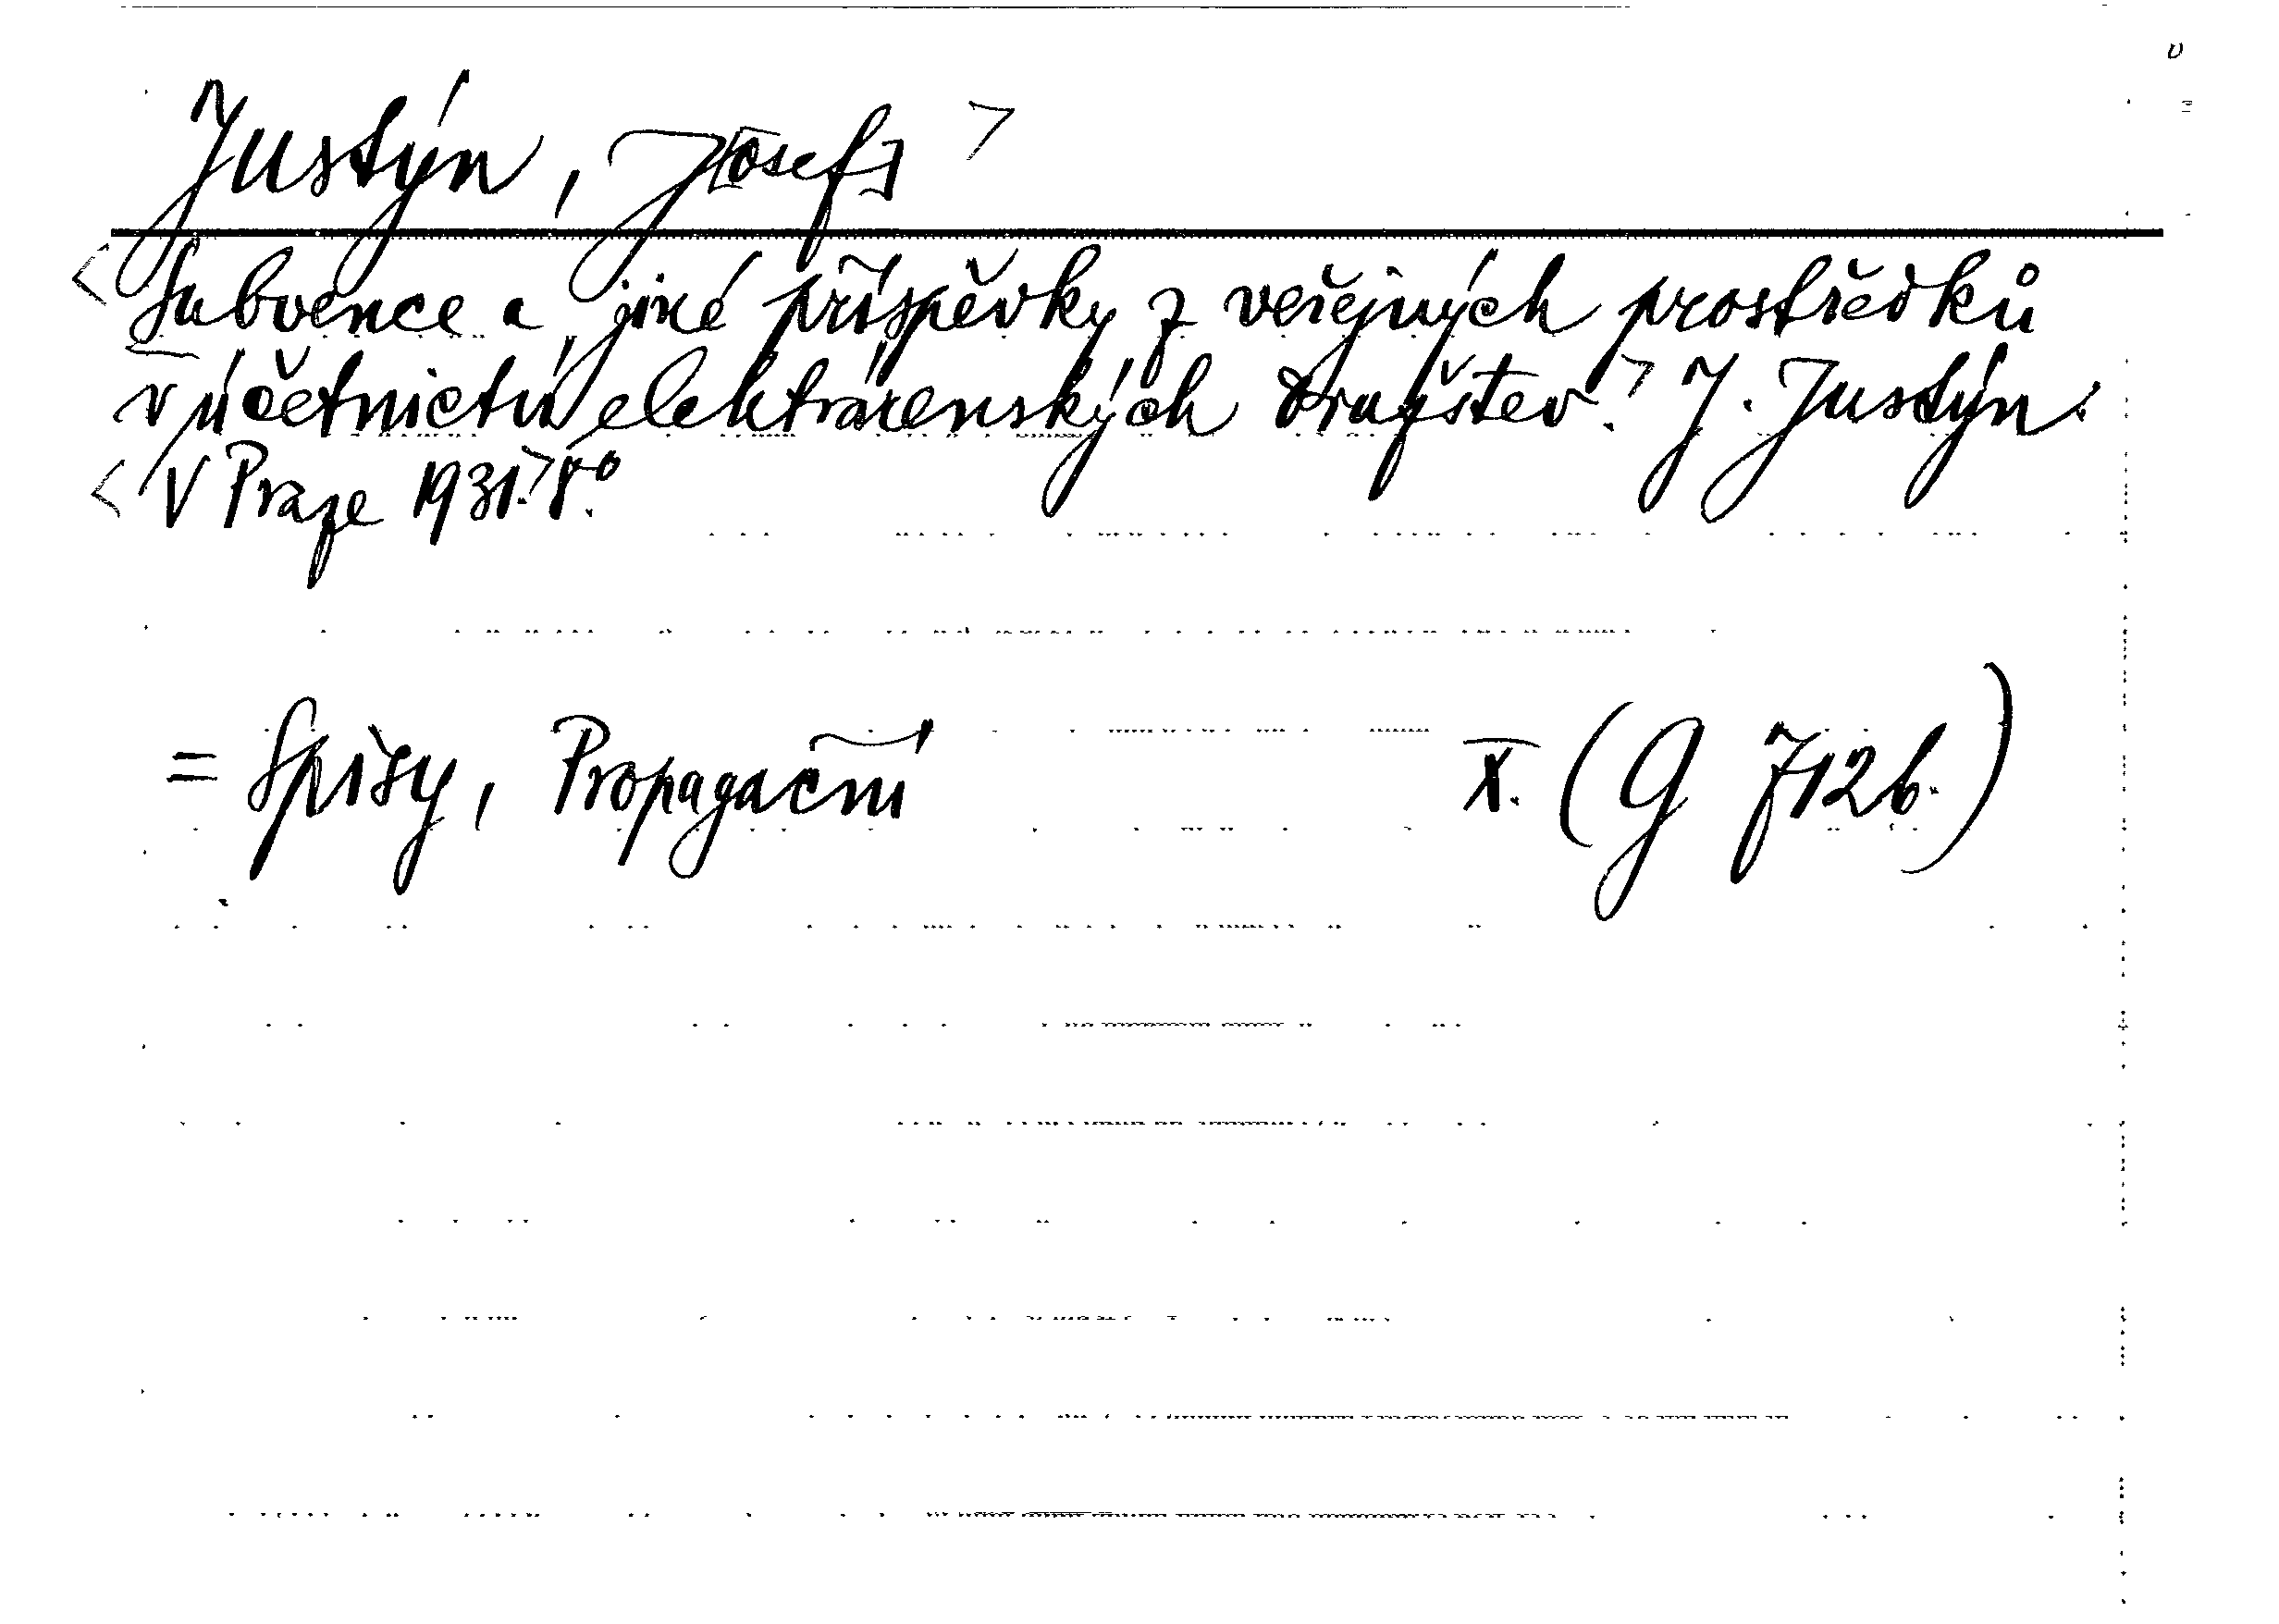 Justýn, J[osef] >
< Subvence a jiné příspěvky z veřejných prostředků
v účetnictví elektrárenských družstev. > J. Justýn.
< V Praze 1931. > 8°.
= Spisy, Propagační X. (G 712b.)